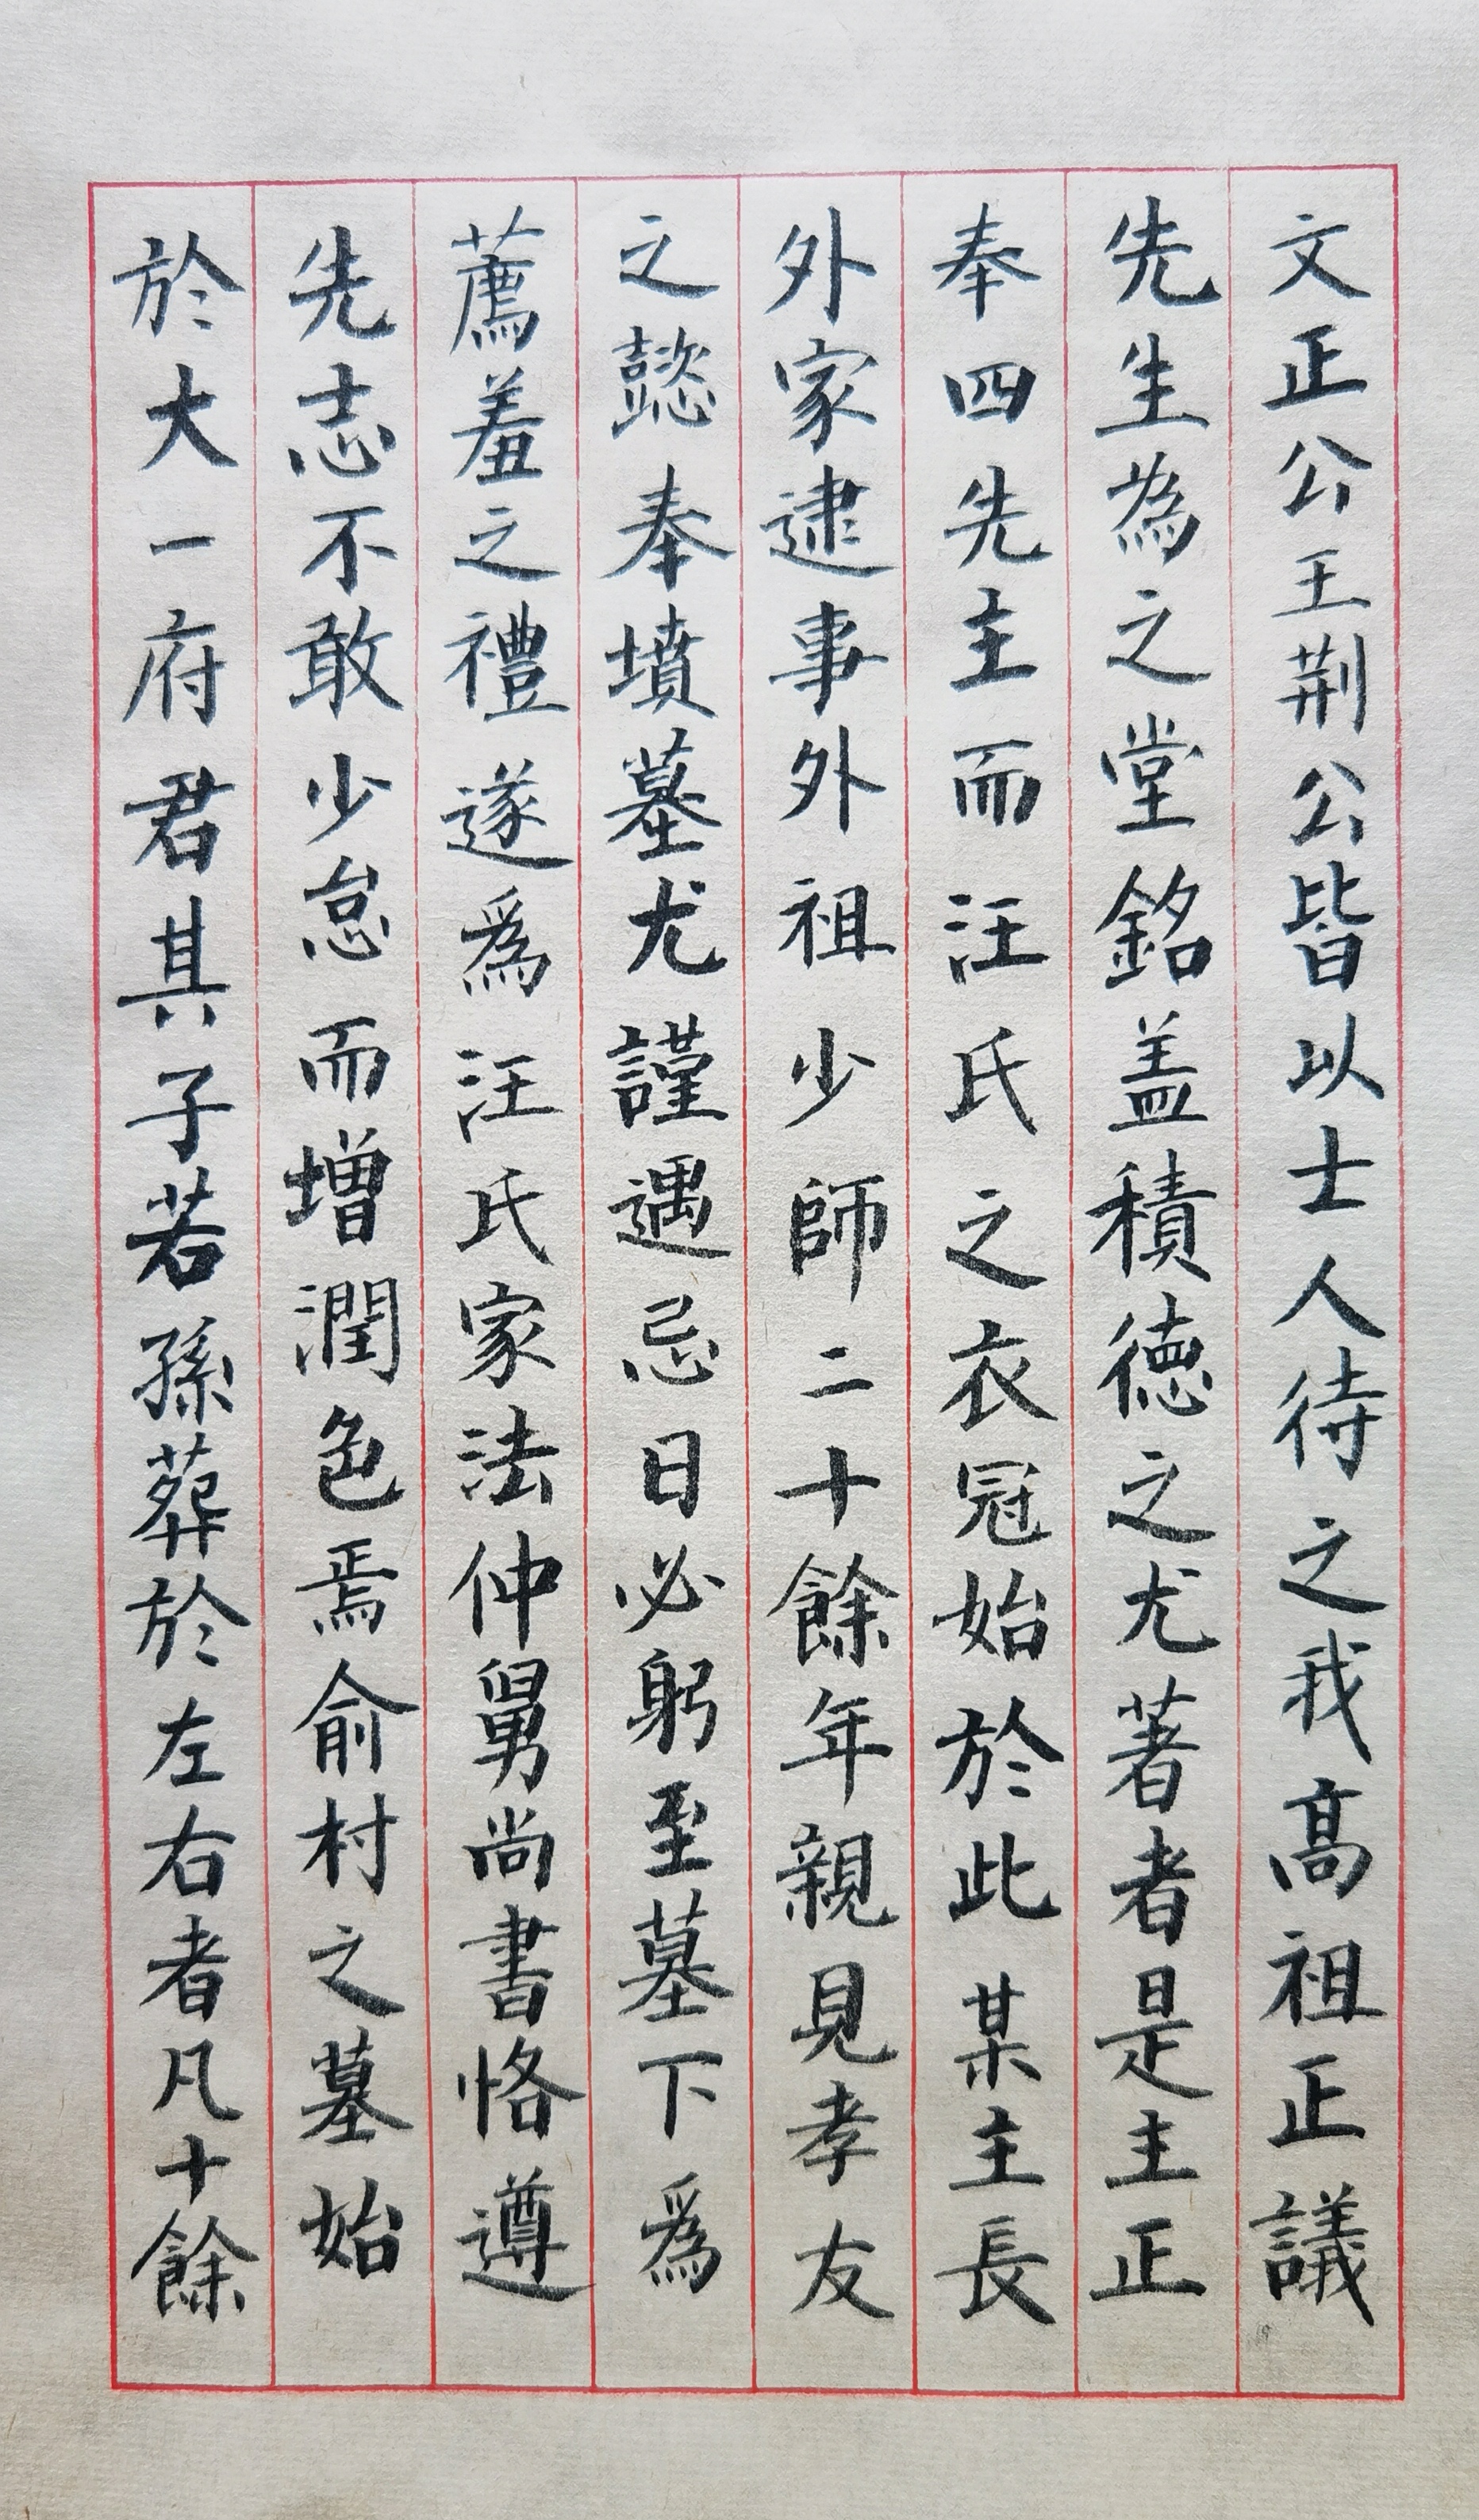 文正公王荆公皆以士人待之我高祖正議
先生為之堂銘盖積德之尤著者是主正
奉四先主而汪氏之衣冠始於此某主長
外家逮事外外祖少師二十餘年親見孝友
之懿奉墳墓尤謹遇忌日必躬至墓下爲
薦羞之禮遂爲汪氏家法仲舅尚書恪遵
先志不敢少怠而增潤色焉俞村之墓始
於大一府君其子若孫葬於左右者凡十餘